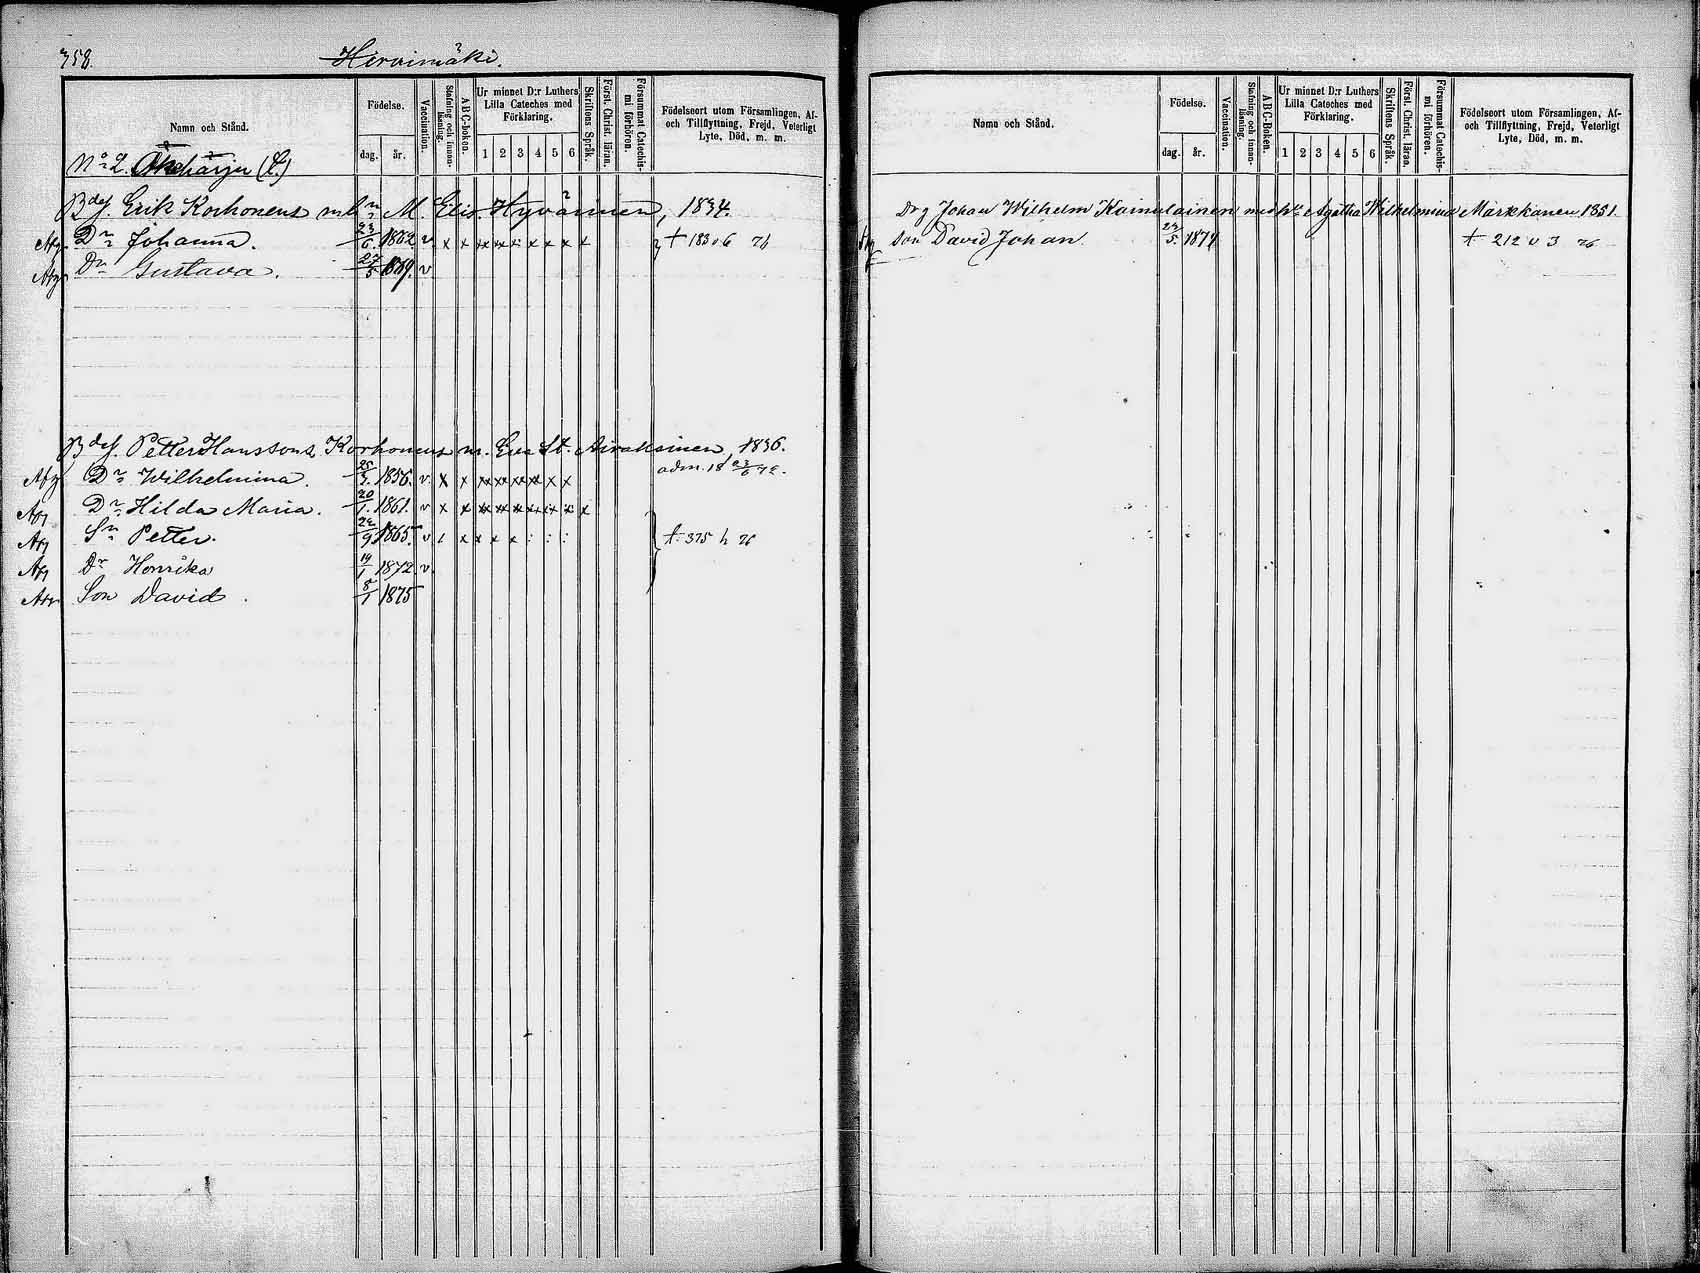 358.
Hirvimäki.
Namn och Stånd.
Födelse.
dag. år.
Vaccination.
Stafning och innanläsning.
ABC-boken.
Ur minnet D:r Luthers Lilla Cateches med Förklaring.
1 2 3 4 5 6
Skriftens Språk.
Först. Christ. läran.
Försummat Catechismi förhören.
Födelseort utom Församlingen, Af- och Tillflyttning, Frejd, Veterligt Lyte, Död, m. m.
No 2. (L.)
Bdes. Erik Korhonens m. M. Elis. Hyvärinen, 1834.
Dr Johanna. 23/6. 1862. v. x x xx xx x x x x x † 183 v 6 76
Dr Gustava. 27/5 1869. v
Bdes. Petter Hanssons Korhonens m. Eva St. Airaksinen, 1836.
Afg Dr Wilhelmina. 25/3. 1856. v. x x xx xx xx xx x x adm. 18 23/6 72.
Afg Dr Hilda Maria. 20/1. 1861. v x x xx xx xx xx xx x x
Afg Sn Petter. 1865. v x x x x : : : † 375 h 76
Afg Dr Henrika 19/1 1872. v.
Son David. 8/1 1875
Namn och Stånd.
Födelse.
dag. år.
Vaccination.
Stafning och innanläsning.
ABC-boken.
Ur minnet D:r Luthers Lilla Cateches med Förklaring.
1 2 3 4 5 6
Skriftens Språk.
Först. Christ. läran.
Försummat Catechismi förhören.
Födelseort utom Församlingen, Af- och Tillflyttning, Frejd, Veterligt Lyte, Död, m. m.
Drg Johan Wilhelm Kainulainen med hu Agatha Wilhelmina Markkanen 1851.
son David Johan 1874 † 212 v 3 76